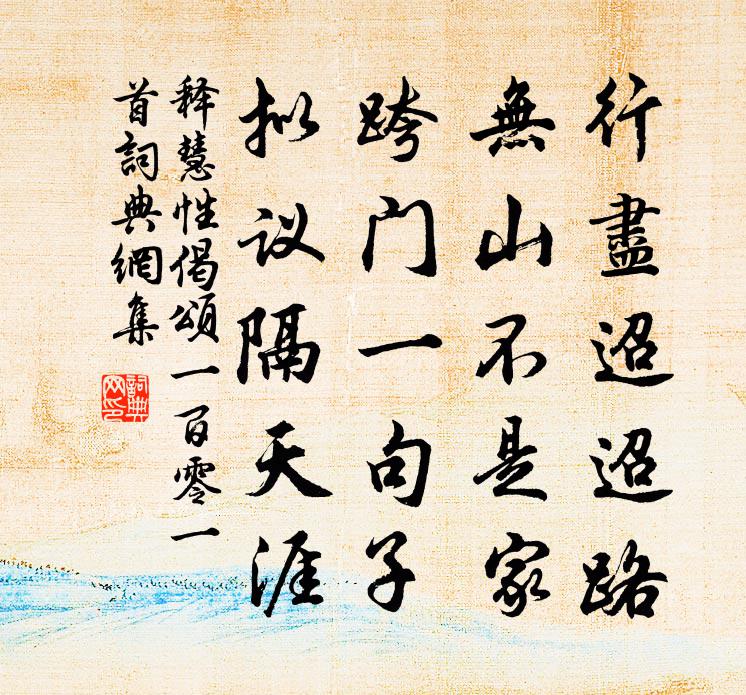 行盡迢迢路
無山不是家
跨门一句子
拟议隔天涯
释慧性偈頌一百零一
首詞典網集
詞典网印